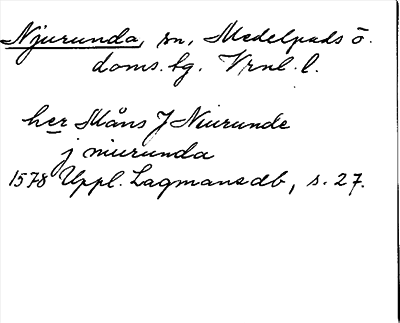 Njurunda, sn, Medelpads ö.
doms.hg. Vrnl. l.
her Måns J Niurunde
j niurunda
1578 Uppl. Lagmansdb, s. 27.